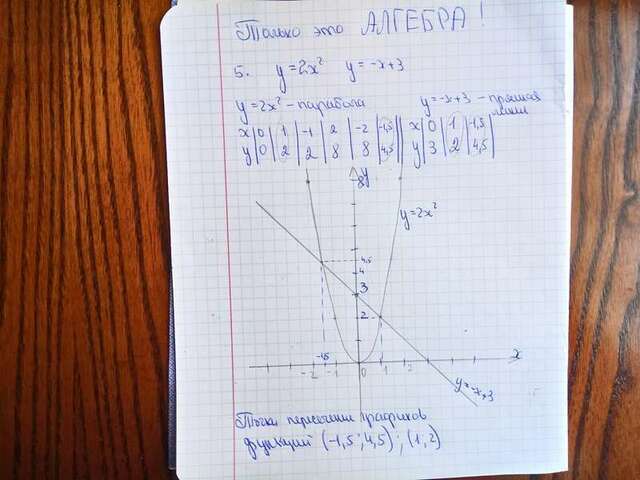 Только это АЛГЕБРА!
5. y=2x² y=-x+3
y=2x² - парабола y=-x+3 - прямая
линия
x|0|1|-1|2|-2|-1,5|| x|0|1|-1,5
y|0|2|2|8|8|4,5|| y|3|2|4,5
8 y
y=2x²
4,5
4
3
2
-1,5
x
-2 -1 0 1 2
y=-x+3
Точки пересечения графиков
функций (-1,5; 4,5); (1; 2)